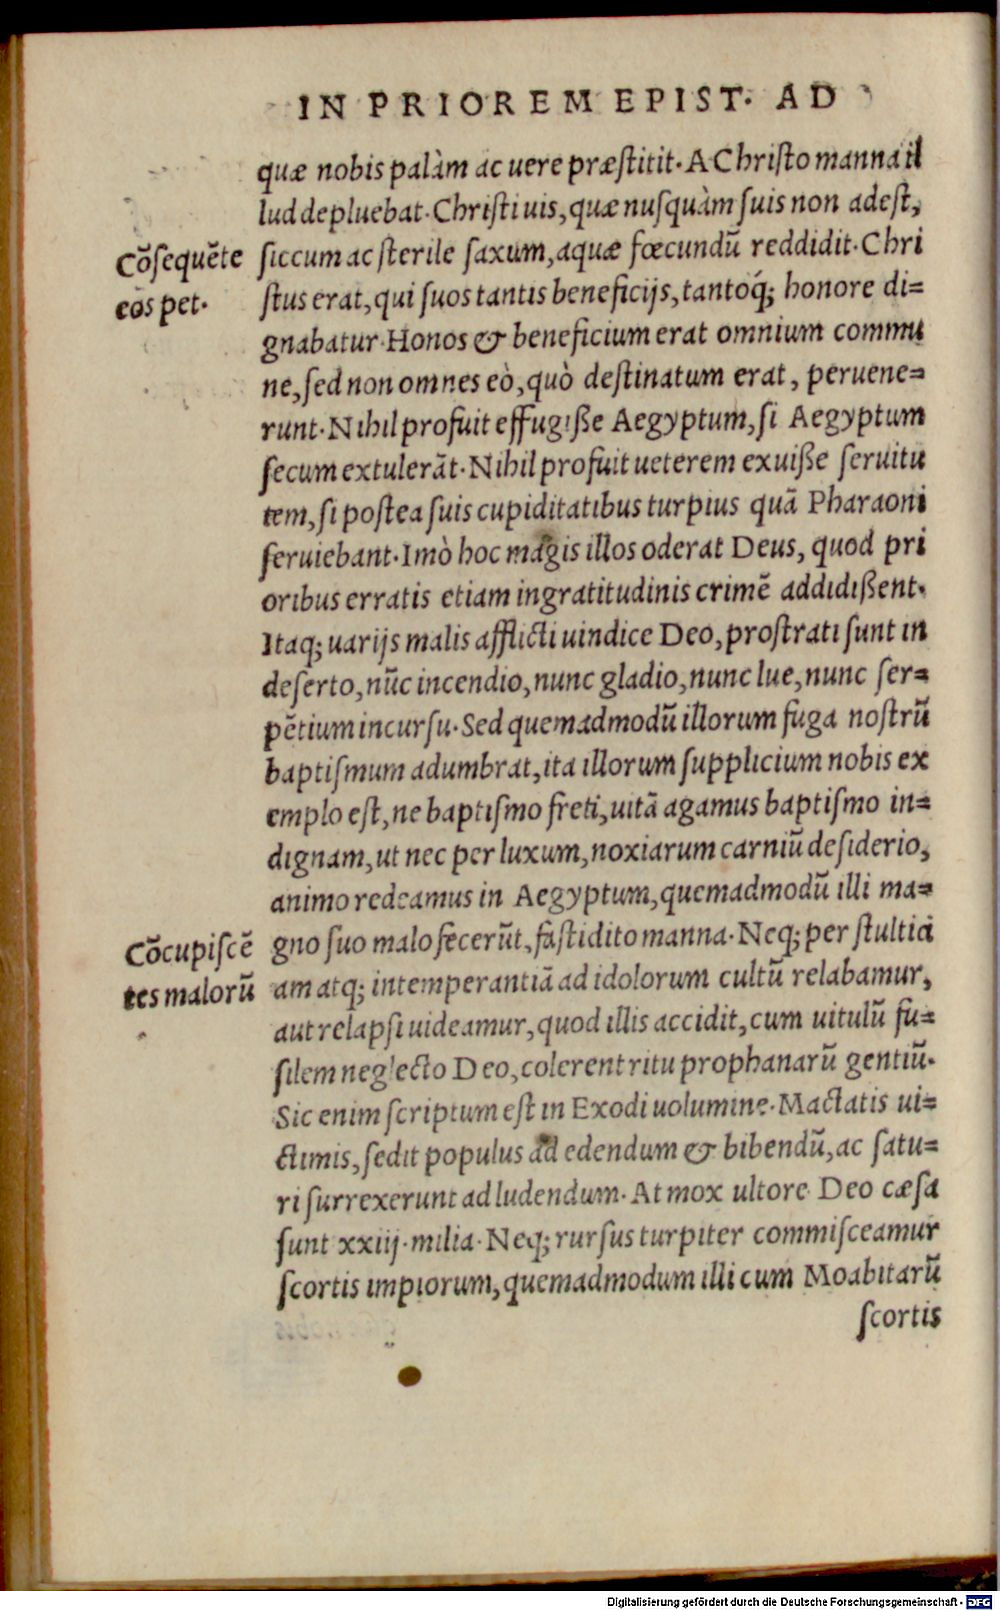 IN PRIOREM EPIST. AD
quæ nobis palàm ac uere præſtitit. A Chriſto manna il
lud depluebat. Chriſti uis, quæ nuſquàm ſuis non adeſt,
Cõſequẽte
ſiccum ac ſterile ſaxum, aquæ fœcundũ reddidit. Chri
eos pet.
ſtus erat, qui ſuos tantis beneficijs, tantoq́; honore di=
gnabatur. Honos & beneficium erat omnium commu
ne, ſed non omnes eò, quò deſtinatum erat, peruene=
runt. Nihil profuit effugiße Aegyptum, ſi Aegyptum
ſecum extulerãt. Nihil profuit ueterem exuiße ſeruitu
tem, ſi poſtea ſuis cupiditatibus turpius quã Pharaoni
ſeruiebant. Imò hoc magis illos oderat Deus, quod pri
oribus erratis etiam ingratitudinis crimẽ addidißent.
Itaq; uarijs malis afflicti uindice Deo, proſtrati ſunt in
deſerto, nũc incendio, nunc gladio, nunc lue, nunc ſer=
pẽtium incurſu. Sed quemadmodũ illorum fuga noſtrũ
baptiſmum adumbrat, ita illorum ſupplicium nobis ex
emplo eſt, ne baptiſmo freti, uitã agamus baptiſmo in=
dignam, ut nec per luxum, noxiarum carniũ deſiderio,
animo redeamus in Aegyptum, quemadmodũ illi ma=
Cõcupiſcẽ
gno ſuo malo fecerũt, faſtidito manna. Neq; per ſtultici
tes malorũ
am atq; intemperantiã ad idolorum cultũ relabamur,
aut relapſi uideamur, quod illis accidit, cum uitulũ fu=
ſilem neglecto Deo, colerent ritu prophanarũ gentiũ.
Sic enim ſcriptum eſt in Exodi uolumine. Mactatis ui=
ctimis, ſedit populus ad edendum & bibendũ, ac ſatu=
ri ſurrexerunt ad ludendum. At mox ultore Deo cæſa
ſunt xxiij. milia. Neq; rurſus turpiter commiſceamur
ſcortis impiorum, quemadmodum illi cum Moabitarũ
ſcortis
Digitalisierung gefördert durch die Deutsche Forschungsgemeinschaft - DFG